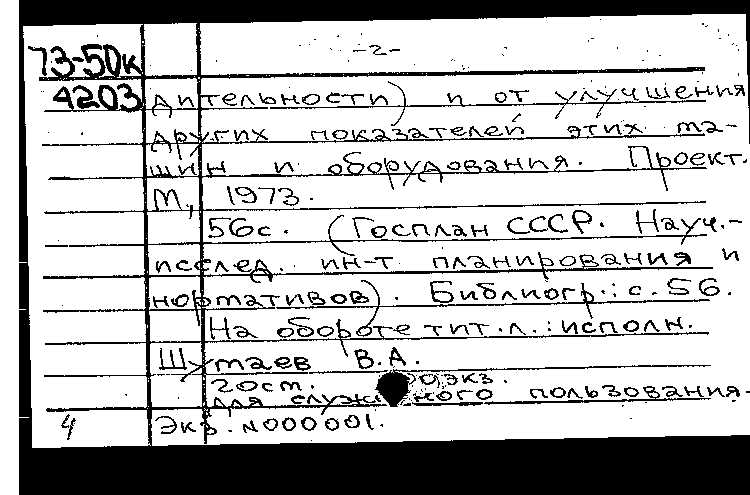 73-50к
-2-
4203
дительности) и от улучшения
других показателей этих ма-
шин и оборудования. Проект.
М, 1973.
56с. (Госплан СССР. Науч.-
исслед. ин-т планирования и
нормативов). Библиогр.: с. 56.
На обороте тит. л.: исполн.
Шутаев В.А.
20см. экз.
Для служебного пользования.
4 Экз. N000001.